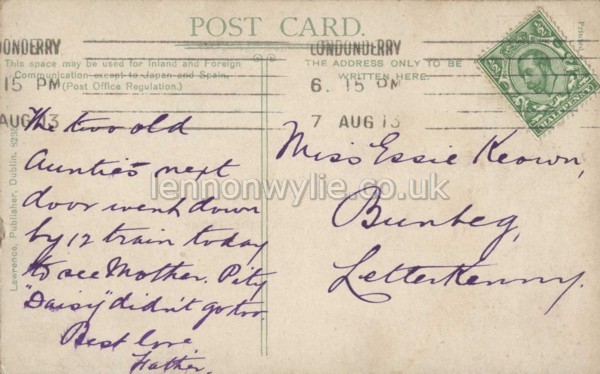 POST CARD.
LONDONDERRY
LONDONDERRY
This space may be used for Inland and Foreign
Communication except to Japan and Spain.
(Post Office Regulation.)
THE ADDRESS ONLY TO BE
WRITTEN HERE.
15 PM
6. 15 PM
AUG 13
7 AUG 13
HALFPENNY
Printed
The two old
Aunties next
door went down
by 12 train today
to see Mother. Pity
"Daisy" didn't go too.
Best love
Father.
Miss Essie Keown,
Bunbeg,
Letterkenny.
Lawrence, Publisher, Dublin.
lennonwylie.co.uk